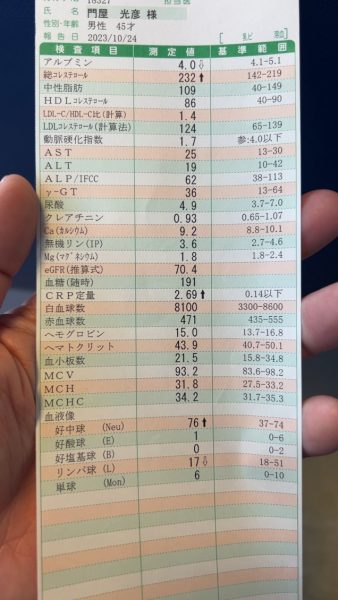 18327 担当医
氏名 門屋 光彦 様
性別・年齢 男性 45才
報告日 2023/10/24
検査項目 測定値 基準範囲
アルブミン 4.0⇩ 4.1-5.1
総コレステロール 232⬆ 142-219
中性脂肪 109 40-149
HDLコレステロール 86 40-90
LDL-C/HDL-C比(計算) 1.4
LDLコレステロール(計算法) 124 65-139
動脈硬化指数 1.7 参:4.0以下
AST 25 13-30
ALT 19 10-42
ALP/IFCC 62 38-113
γ-GT 36 13-64
尿酸 4.9 3.7-7.0
クレアチニン 0.93 0.65-1.07
Ca(カルシウム) 9.2 8.8-10.1
無機リン(IP) 3.6 2.7-4.6
Mg(マグネシウム) 1.8 1.8-2.4
eGFR(推算式) 70.4
血糖(随時) 191
CRP定量 2.69⬆ 0.14以下
白血球数 8100 3300-8600
赤血球数 471 435-555
ヘモグロビン 15.0 13.7-16.8
ヘマトクリット 43.9 40.7-50.1
血小板数 21.5 15.8-34.8
MCV 93.2 83.6-98.2
MCH 31.8 27.5-33.2
MCHC 34.2 31.7-35.3
血液像
好中球 (Neu) 76⬆ 37-74
好酸球 (E) 1 0-6
好塩基球(B) 0 0-2
リンパ球(L) 17⇩ 18-51
単球 (Mon) 6 0-10